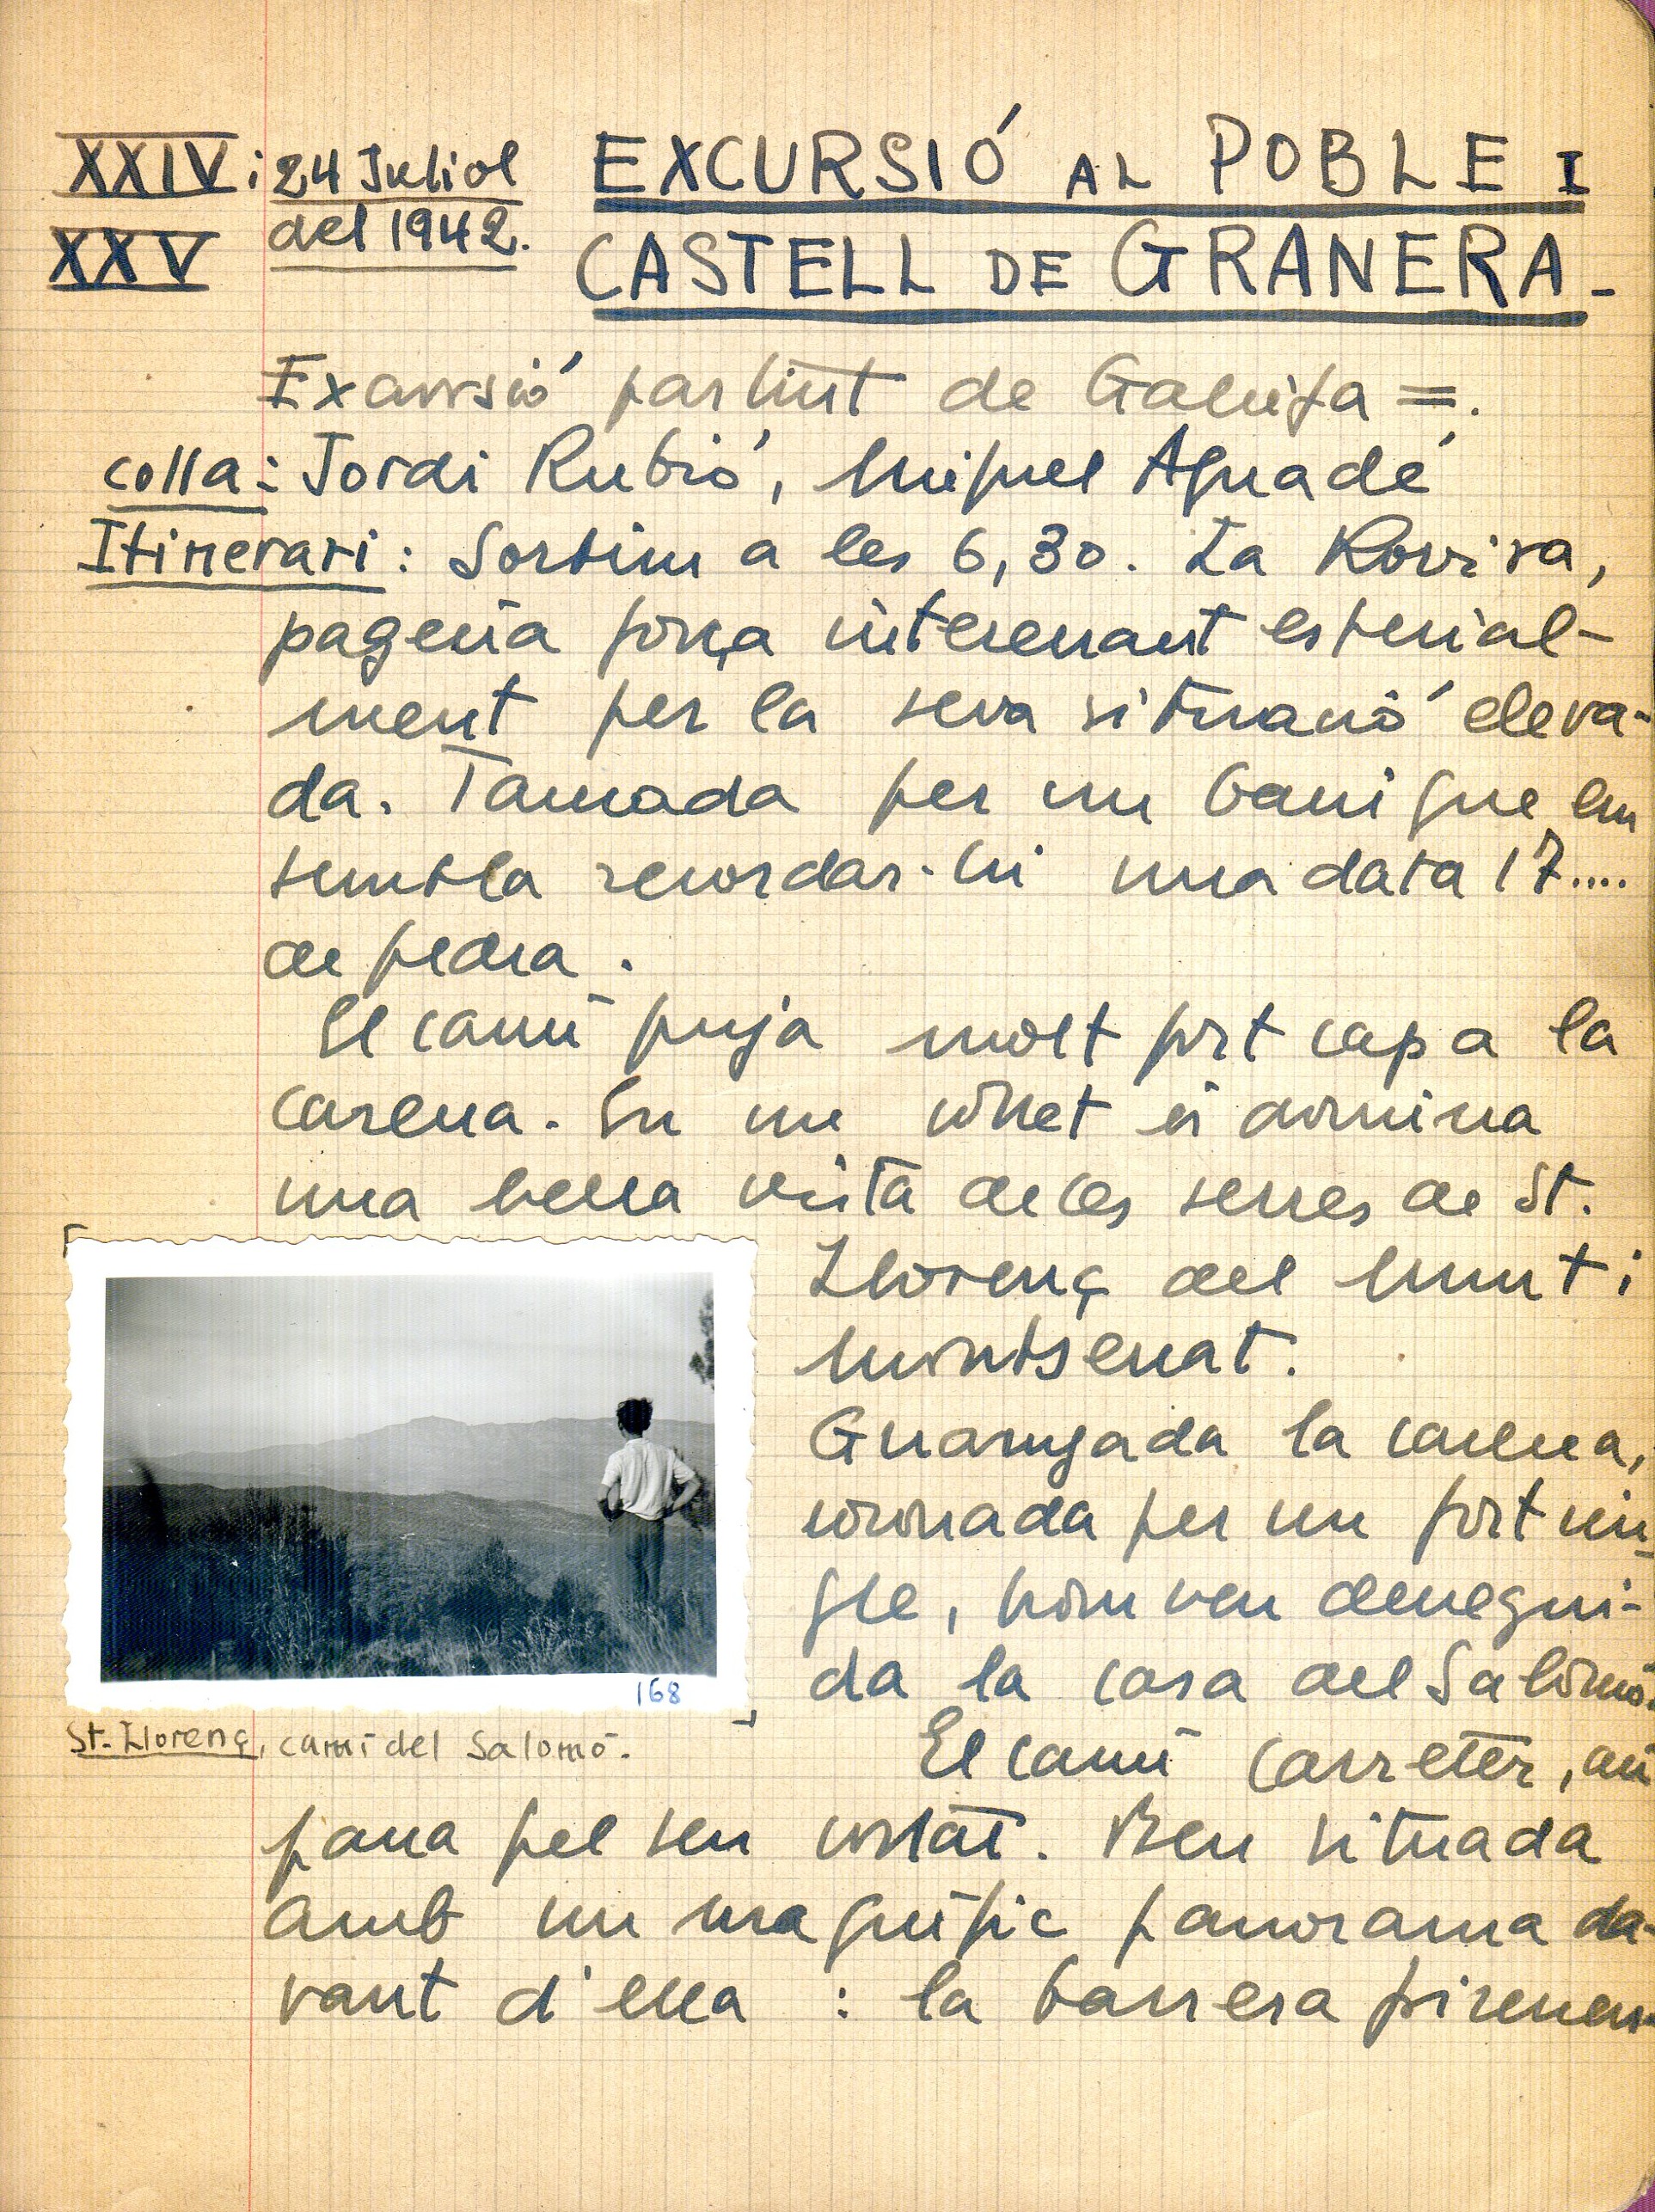 XXIV i 24 Juliol EXCURSIÓ AL POBLE I
XXV del 1942. CASTELL DE GRANERA -
Excursió partint de Gallifa =.
colla: Jordi Rubió, Miquel Aguadé
Itinerari: Sortim a les 6,30. La Rovira,
pagesia força interessant especial-
ment per la seva situació eleva-
da. Tancada per un barri que em
sembla recordar-hi una data 17....
de pedra.
El camí puja molt fort cap a la
carena. En un collet es domina
una bella vista de les serres de St.
Llorenç del Munt i
Montserrat.
Guanyada la carena,
coronada per un fort cin-
gle, hom veu desegui-
da la casa del Salomó.
168
St. Llorenç, camí del Salomó.
El camí carreter, ací
passa pel seu costat. Ben situada
amb un magnífic panorama da-
vant d'ella : la barrera pirenen-